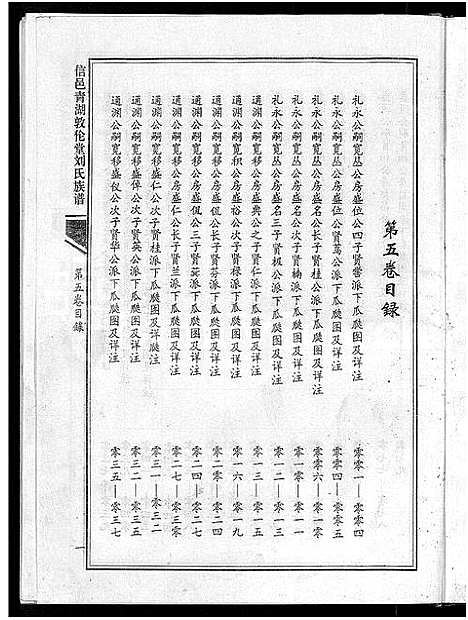 第五卷目录
礼永公嗣宽丛公房盛位公四子贤 公派下瓜瓞图及详注 零零一—零零四
礼永公嗣宽丛公房盛位公 贤 公派下瓜瓞图及详注 零零四—零零五
礼永公嗣宽丛公房盛名公长子贤桂公派下瓜瓞图及详注 零零六—零一零
礼永公嗣宽丛公房盛名公次子贤楠派下瓜瓞图及详注 零一零—零一一
礼永公嗣宽丛公房盛名三子贤极公派下瓜瓞图及详注 零一二—零一三
通渊公嗣宽移公房盛典公之子贤仁派下瓜瓞图及详注 零一三—零一五
通渊公嗣宽积公房盛裕公次子贤禄派下瓜瓞图及详注 零一六—零一九
通渊公嗣宽移公房盛侃公长子贤芬派下瓜瓞图及详注 零二零—零二四
通渊公嗣宽移公房盛侃公三子贤 派下瓜瓞图及详注 零二四—零二七
通渊公嗣宽移公房盛仁公长子贤兰派下瓜瓞图及详注 零二七—零三零
通渊公嗣宽移盛仁公次子贤桂派下瓜瓞图及详注 零三一—零三二
通渊公嗣宽移盛倬公次子贤英公派下瓜瓞图及详注 零三二—零三五
通渊公嗣宽移盛仪公次子贤华公派下瓜瓞图及详注 零三五—零三七
信邑青湖敦伦堂刘氏族谱
第五卷目录
一